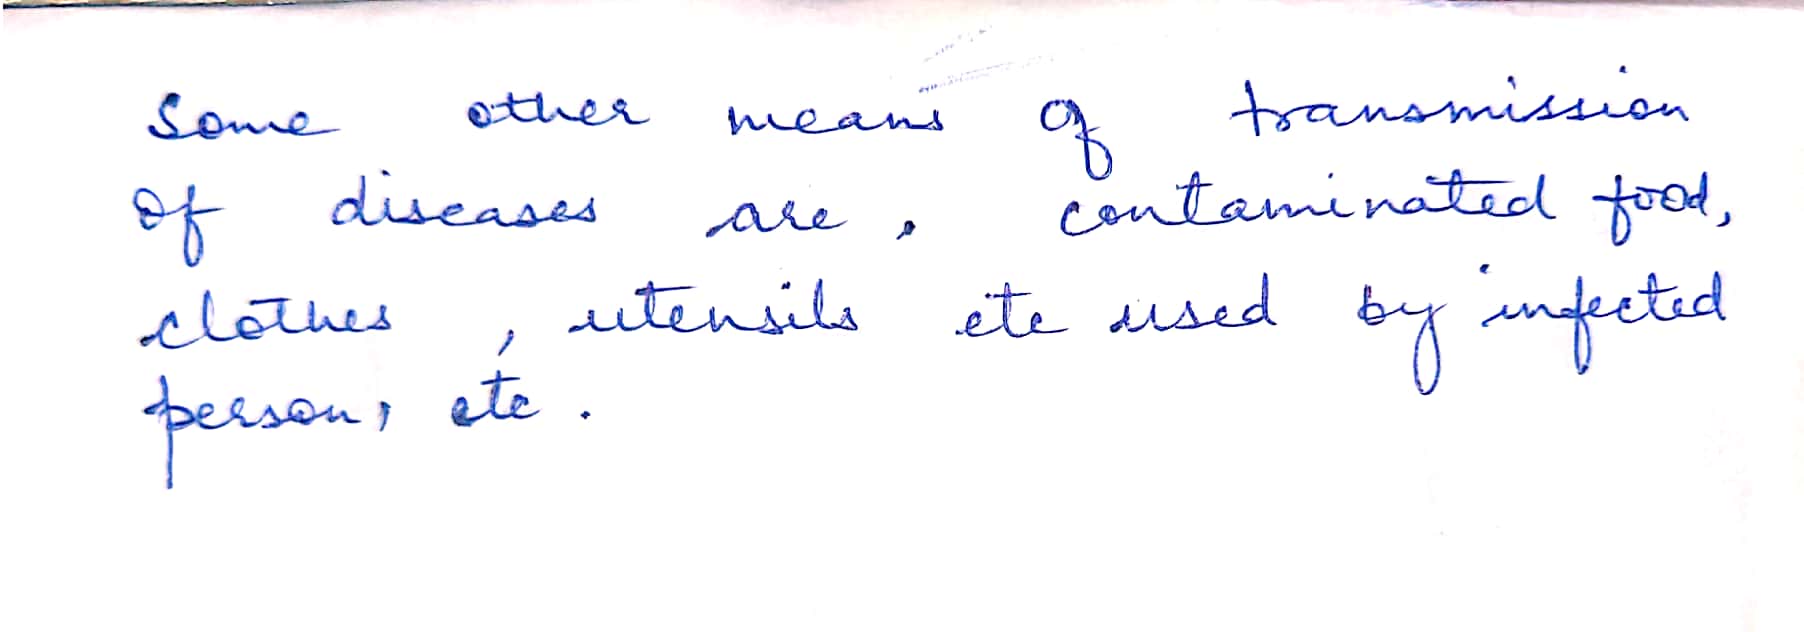 Some other means of transmission
of diseases are , contaminated food,
clothes , utensils etc used by infected
person, etc .